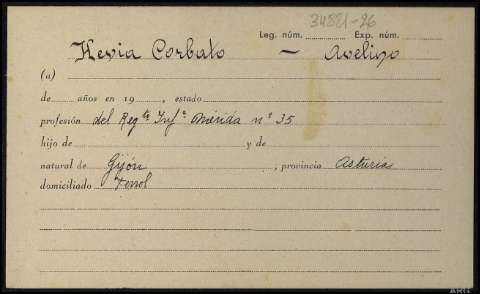 34821-26
Leg. núm. Exp. núm.
Hevia Corbato — Avelino
(a)
de años en 19 , estado
profesión del Regto Infa Mérida nº 35
hijo de y de
natural de Gijón , provincia Asturias
domiciliado Ferrol